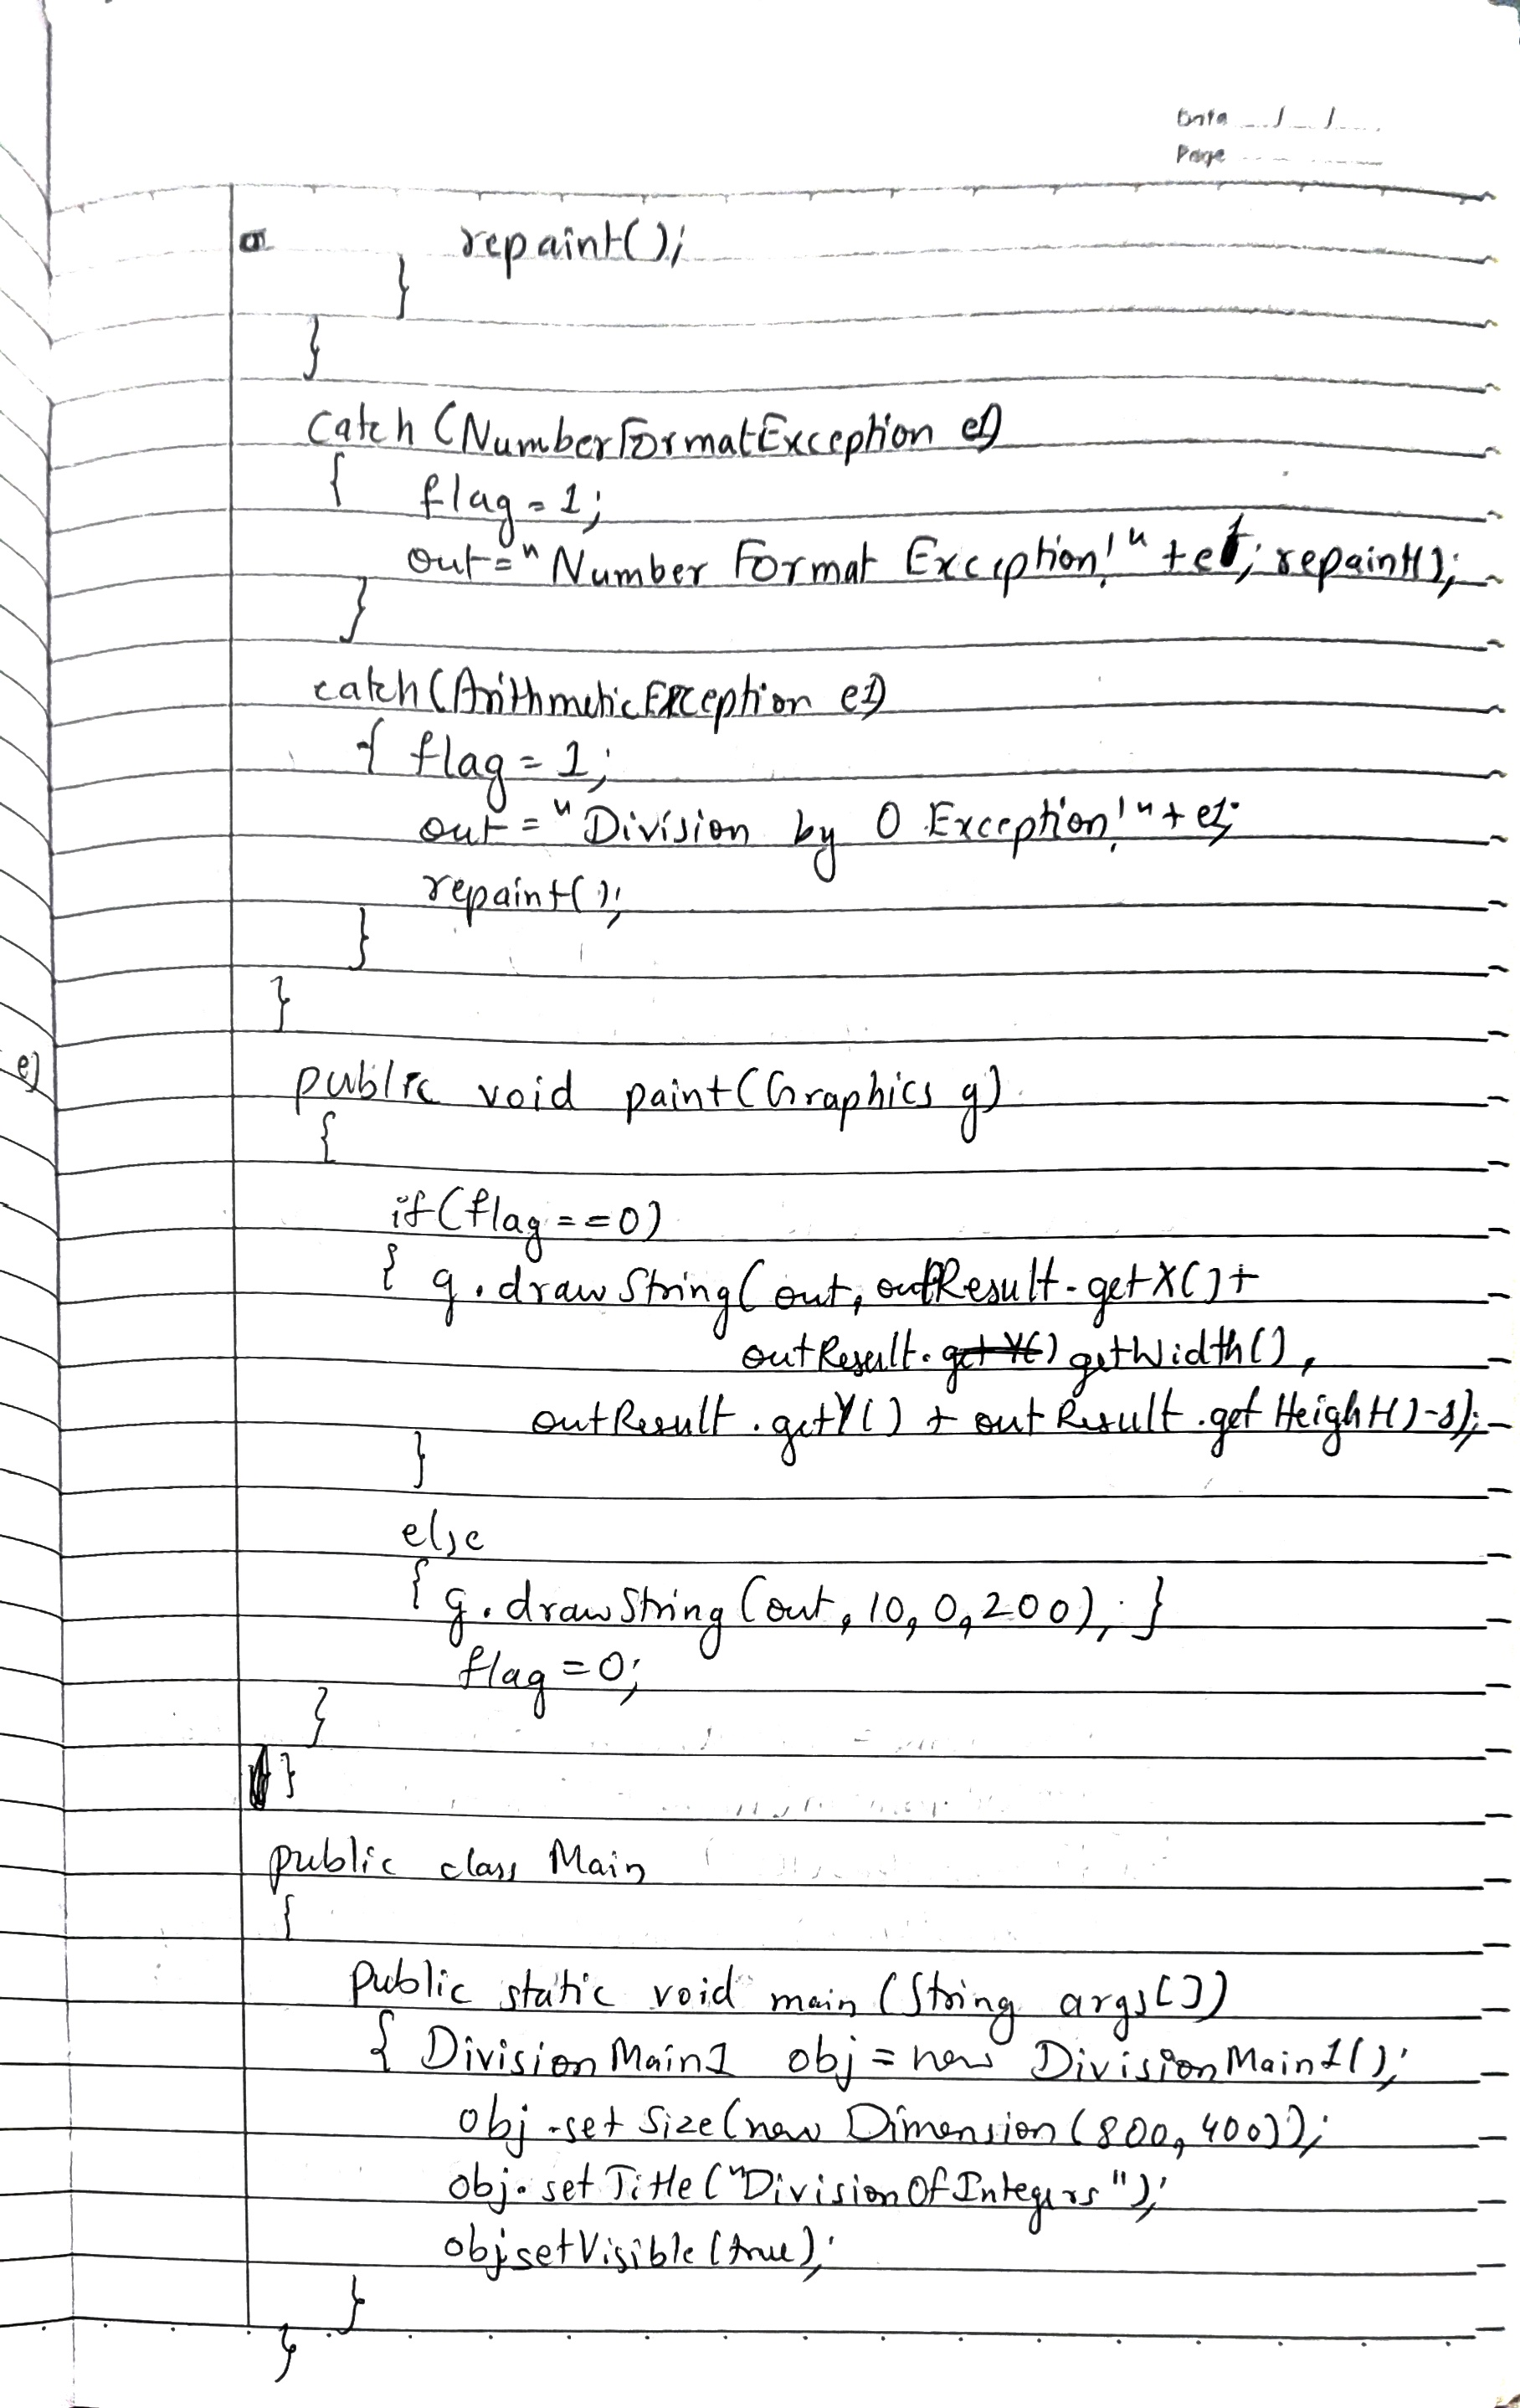 Date __/__/__
Page
repaint();
}
}
catch (NumberFormatException e1)
{ flag = 1;
out = "Number Format Exception!" + e1; repaint();
}
catch (ArithmeticException e1)
{ flag = 1;
out = "Division by 0 Exception!" + e1;
repaint();
}
}
e)
public void paint(Graphics g)
{
if (flag == 0)
{ g.drawString(out, outResult.getX() +
outResult.getWidth(),
outResult.getY() + outResult.getHeight()-8);
}
else
{ g.drawString(out, 10, 0, 200); }
flag = 0;
}
}
public class Main
{
public static void main (String args[])
{ DivisionMain1 obj = new DivisionMain1();
obj.setSize(new Dimension(800, 400));
obj.setTitle("DivisionOfIntegers");
obj.setVisible(true);
}
}